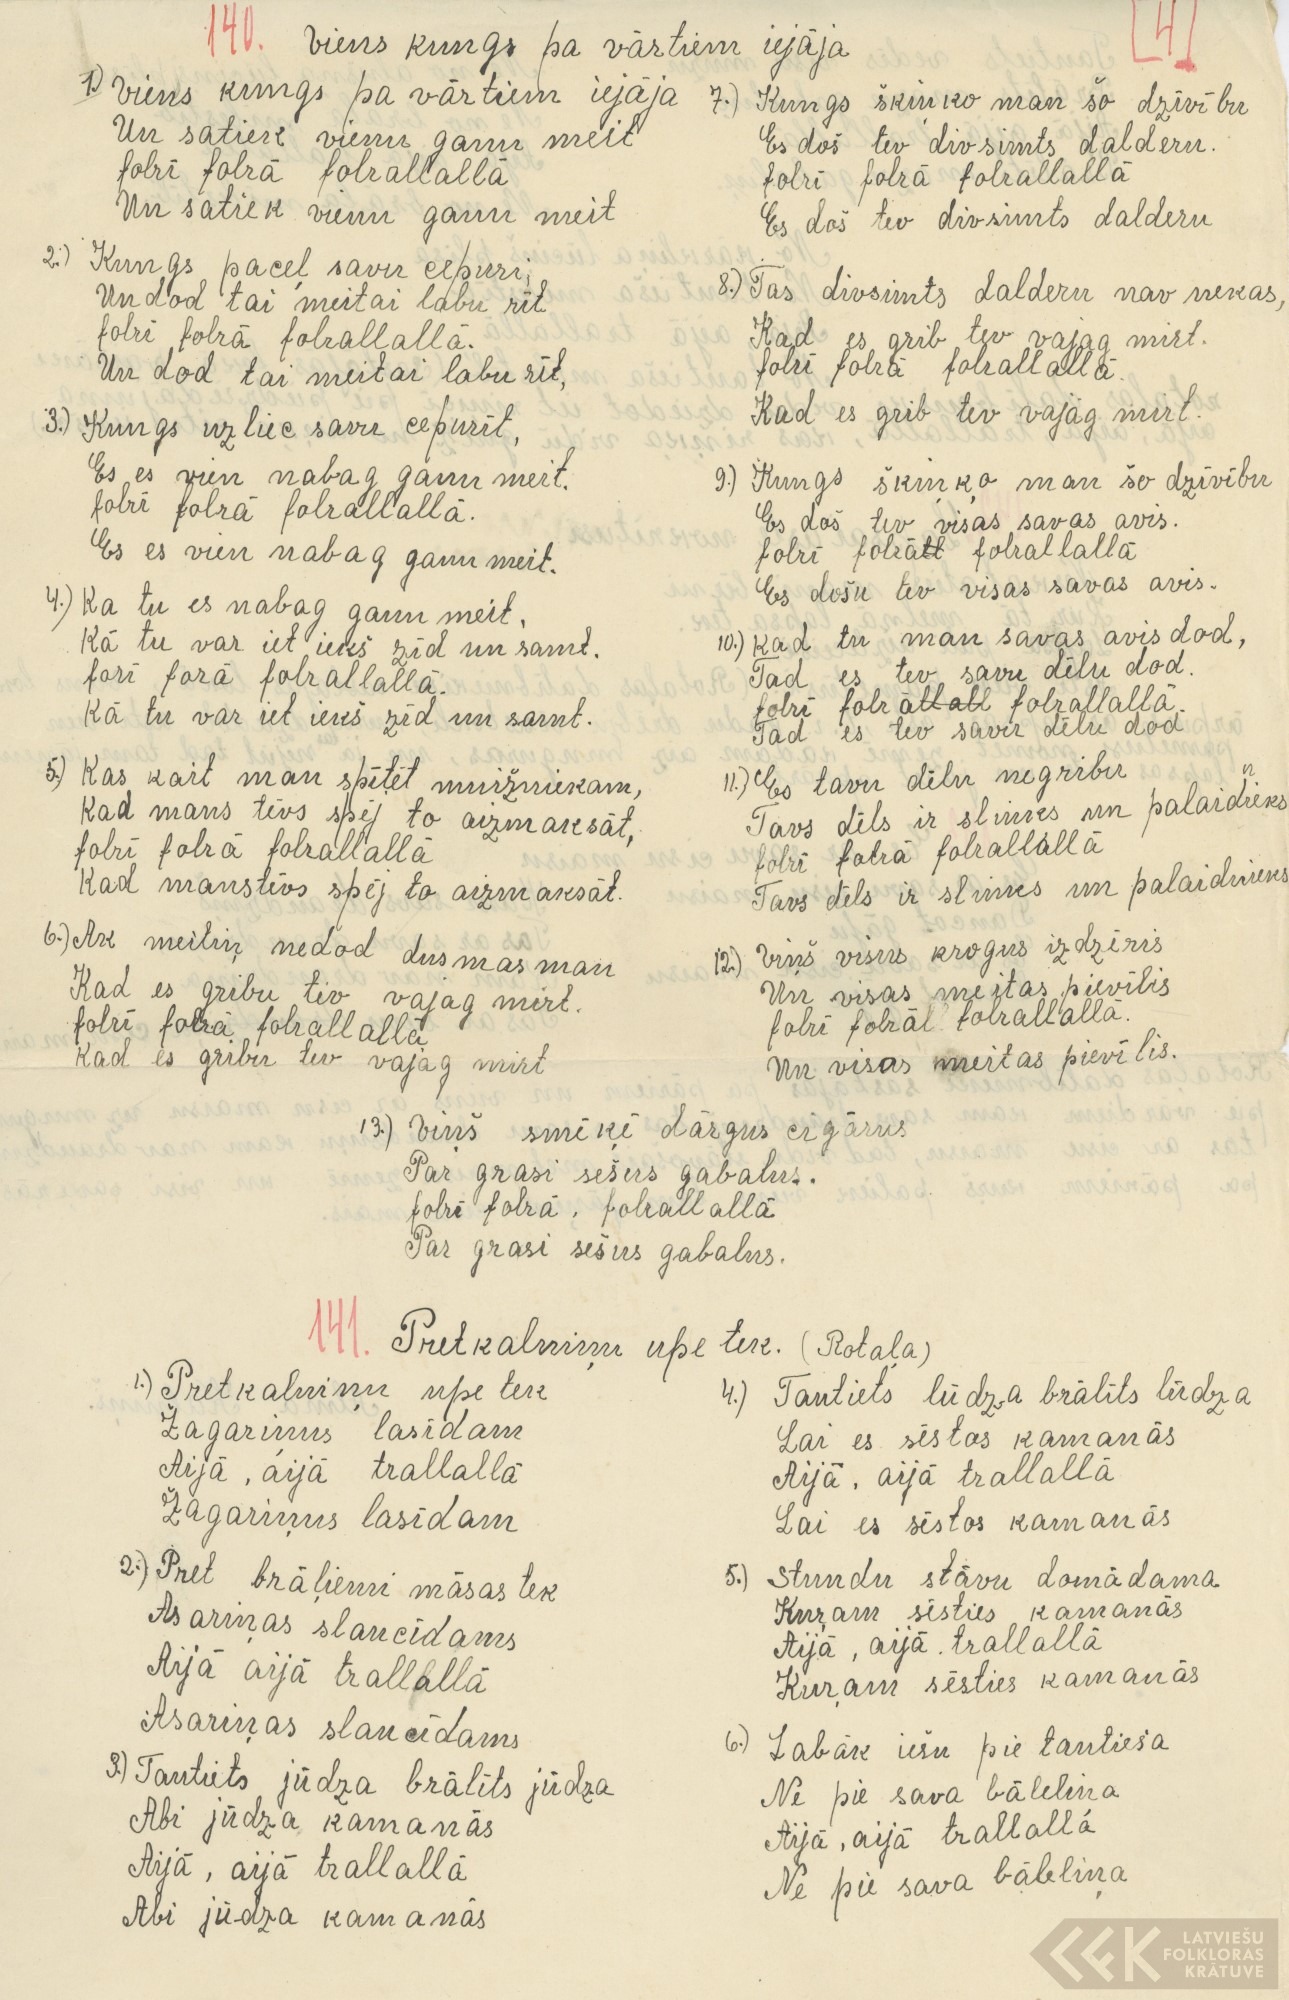 140. Viens kungs pa vārtiem iejāja
[4]
1.) Viens kungs pa vārtiem iejāja
Un satiek vienu ganu meit
folrī folrā folrallallā
Un satiek vienu ganu meit
2.) Kungs paceļ savu cepuri,
Un dod tai meitai labu rīt
folrī folrā folrallallā.
Un dod tai meitai labu rīt,
3.) Kungs uzliec savu cepurīt,
Es es vien nabag ganu meit.
folrī folrā folrallallā.
Es es vien nabag ganu meit.
4.) Ka tu es nabag ganu meit,
Kā tu var iet iekš zīd un samt.
forī forā folrallallā.
Kā tu var iet iekš zīd un samt.
5.) Kas kait man spītēt muižniekam,
Kad mans tēvs spēj to aizmaksāt,
folrī folrā folrallallā
Kad manstēvs spēj to aizmaksāt.
6.) Ak meitiņ nedod dusmas man
Kad es gribu tev vajag mirt.
folrī folrā folrallallā
Kad es gribu tev vajag mirt
7.) Kungs šķiņko man šo dzīvību
Es došu tev divsimts dalderu.
folrī folrā folrallallā
Es doš tev divsimts dalderu
8.) Tas divsimts dalderu nav nekas,
Kad es grib tev vajag mirt.
folrī folrā folrallallā.
Kad es grib tev vajag mirt.
9.) Kungs šķiņķo man šo dzīvību
Es doš tev visas savas avis.
folrī folrātt folrallallā
Es došu tev visas savas avis.
10.) Kad tu man savas avis dod,
Tad es tev savu dēlu dod.
folrī folrāllall folrallallā.
Tad es tev savu dēlu dod
11.) Es tavu dēlu negribu
Tavs dēls ir slinks un palaidnieks
folrī folrā folrallallā
Tavs dēls ir slinks un palaidnieks
12.) Viņš visus krogus izdzēris
Un visas meitas pievīlis
folrī folrāl folrallallā.
Un visas meitas pievīlis.
13.) Viņš smēķē dārgus cigārus
Par grasi sešus gabalus.
folrī folrā, folrallallā
Par grasi sešus gabalus.
141. Pretkalniņu upe tek. (Rotaļa)
1.) Pretkalniņu upe tek
Žagariņus lasīdam
Aijā, aijā trallallā
Žagariņus lasīdam
2.) Pret brāļiemi māsas tek
Asariņas slaucīdams
Aijā aijā trallallā
Asariņas slaucīdams
3.) Tantiets jūdza brālīts jūdza
Abi jūdza kamanās
Aijā, aijā trallallā
Abi jūdza kamanās
4.) Tantiets lūdza brālīts lūdza
Lai es sēstos kamanās
Aijā, aijā trallallā
Lai es sēstos kamanās
5.) Stundu stāvu domādama
Kuŗam sēsties kamanās
Aijā, aijā trallallā
Kuŗam sēsties kamanās
6.) Labāk iešu pie tantieša
Ne pie sava bāleliņa
Aijā, aijā trallallā
Ne pie sava bāleliņa
LATVIEŠU
FOLKLORAS
KRĀTUVE